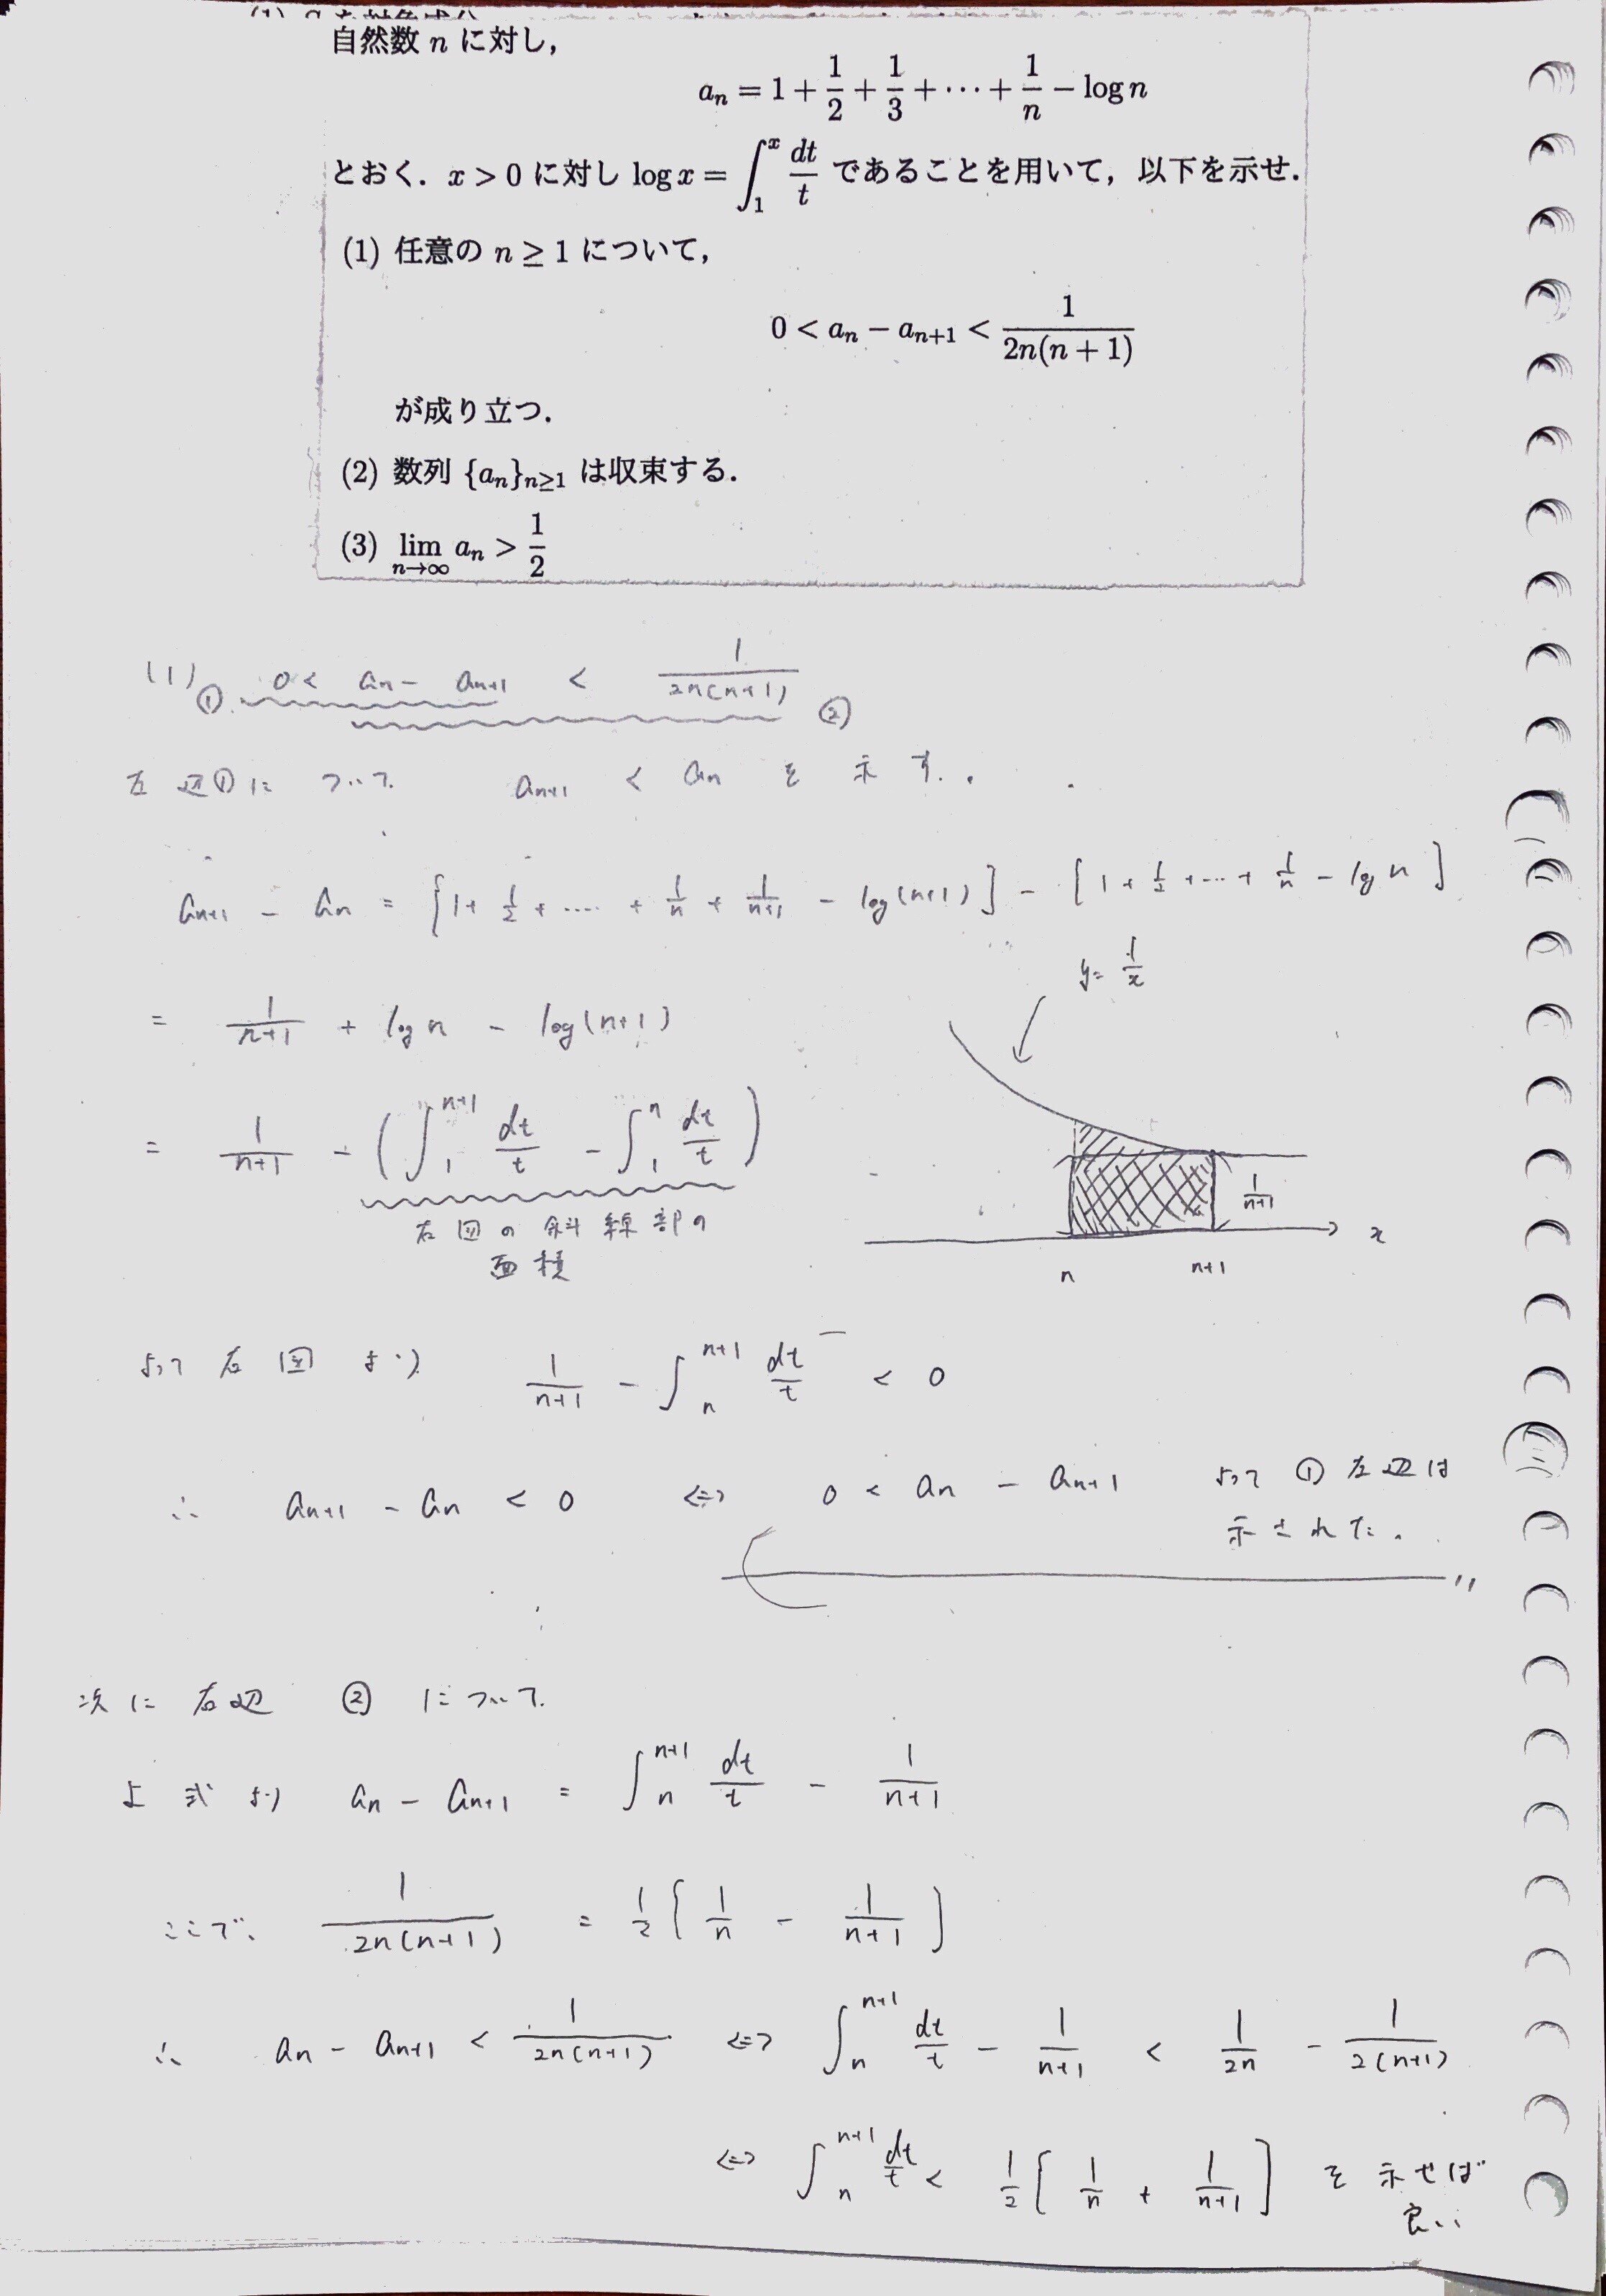 自然数 n に対し,
a_n = 1 + 1/2 + 1/3 + ⋯ + 1/n − log n
とおく. x > 0 に対し log x = ∫_1^x dt/t であることを用いて, 以下を示せ.
(1) 任意の n ≥ 1 について,
0 < a_n − a_{n+1} < 1/(2n(n + 1))
が成り立つ.
(2) 数列 {a_n}_{n≥1} は収束する.
(3) lim_{n→∞} a_n > 1/2
(1) ① 0 < a_n − a_{n+1} < 1/(2n(n+1)) ②
左辺①について a_{n+1} < a_n を示す.
a_{n+1} − a_n = [1 + 1/2 + ‥‥ + 1/n + 1/(n+1) − log(n+1)] − [1 + 1/2 + ‥‥ + 1/n − log n]
y = 1/x
= 1/(n+1) + log n − log(n+1)
= 1/(n+1) − (∫_1^{n+1} dt/t − ∫_1^n dt/t)
右図の斜線部の
面積
1/(n+1)
x
n
n+1
よって右図より 1/(n+1) − ∫_n^{n+1} dt/t < 0
∴ a_{n+1} − a_n < 0 ⇔ 0 < a_n − a_{n+1} よって①左辺は
示された.
次に右辺②について
上式より a_n − a_{n+1} = ∫_n^{n+1} dt/t − 1/(n+1)
ここで、 1/(2n(n+1)) = 1/2 [1/n − 1/(n+1)]
∴ a_n − a_{n+1} < 1/(2n(n+1)) ⇔ ∫_n^{n+1} dt/t − 1/(n+1) < 1/(2n) − 1/(2(n+1))
⇔ ∫_n^{n+1} dt/t < 1/2 [1/n + 1/(n+1)] を示せば
良い